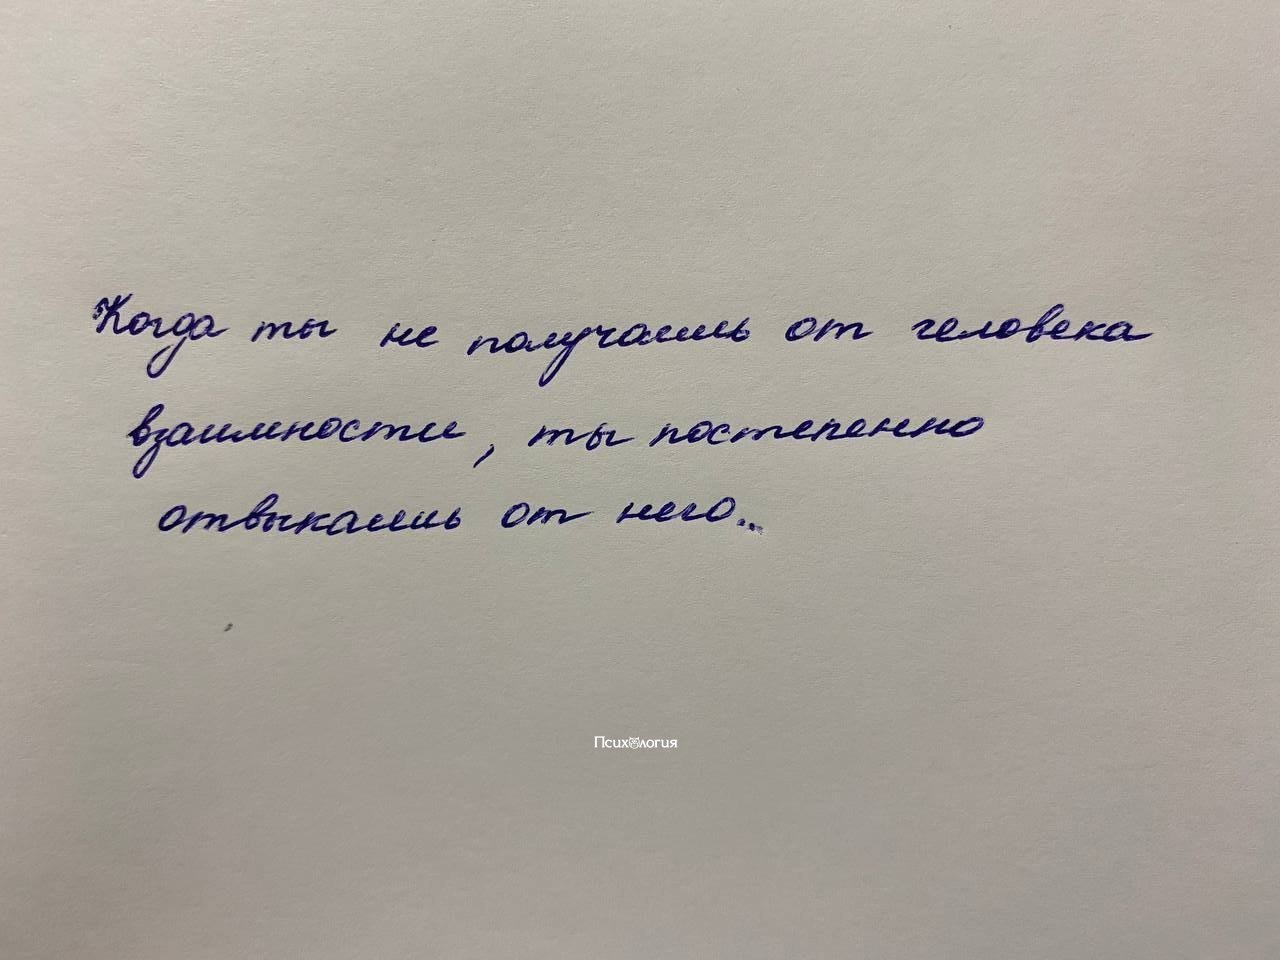 Когда ты не получаешь от человека
взаимности, ты постепенно
отвыкаешь от него...
Психология